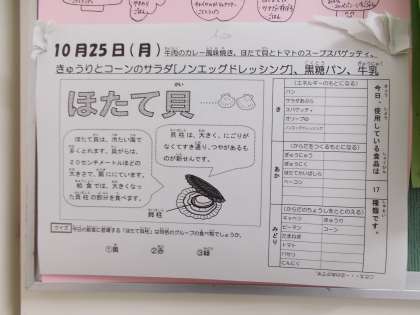 10月25日(月)
牛肉のカレー風味焼き、ほたて貝とトマトのスープスパゲッティ、
きゅうりとコーンのサラダ[ノンエッグドレッシング]、黒糖パン、牛乳
ほたて貝
ほたて貝は、冷たい海で
多くとれます。貝がらは、
20センチメートルほどの
大きさで、扇ににています。
給食では、大きくなった
貝柱の部分を食べます。
貝柱は、大きく、にごりが
なくてすき通り、つやがあるも
のが新せんです。
貝柱
クイズ
今日の給食に登場する「ほたて貝柱」は何色のグループの食べ物でしょうか。
①黄 ②赤 ③緑
今日、使用している食品は
17
種類です。
き
(エネルギーのもとになる)
パン
サラダあぶら
スパゲティ
オリーブゆ
ノンエッグドレッシング
あか
(からだをつくるもとになる)
ぎゅうにゅう
ぎゅうにく
ほたてかいばしら
ベーコン
みどり
(からだのちょうしをととのえる)
キャベツ きゅうり
ピーマン コーン
たまねぎ
トマト
パセリ
にんにく